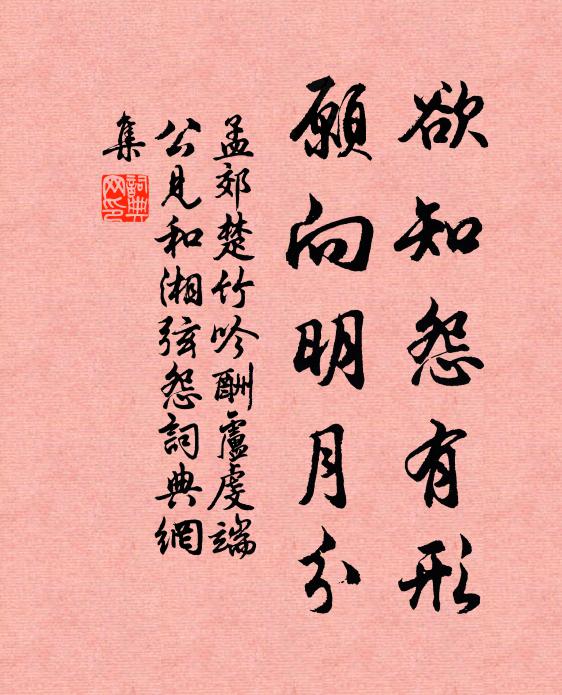 欲知怨有形
願向明月分
孟郊楚竹吟酬盧虔端
公見和湘弦怨詞典網
集
詞典
网印